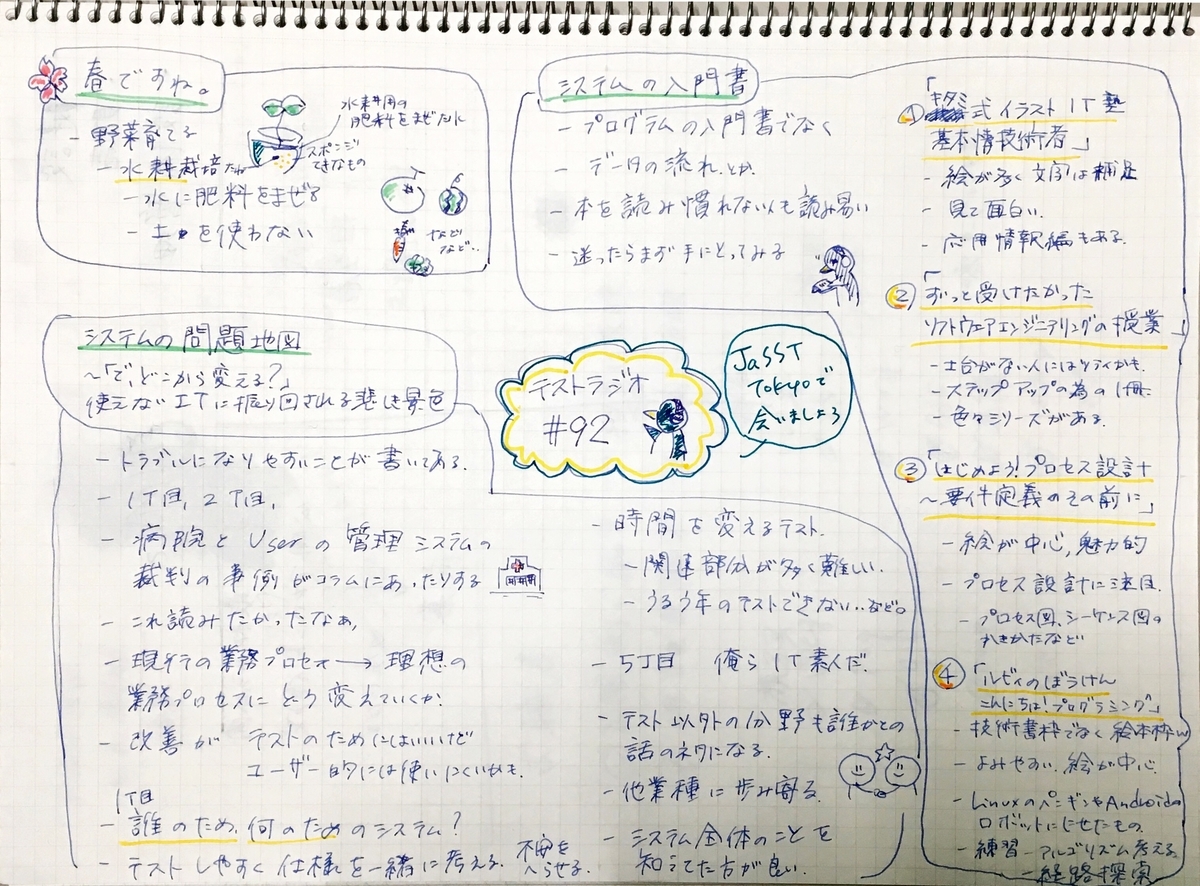 春ですね。
- 野菜育てる
- 水耕栽培だね
- 水に肥料をまぜる
- 土を使わない
水耕用の
肥料をまぜた水
スポンジ
できなもの
などなど..
システムの入門書
- プログラムの入門書でなく
- データの流れとか
- 本を読み慣れない人も読み易い
- 迷ったらまず手にとってみる
①「キタミ式イラストIT塾
基本情技術者」
- 絵が多く文字は補足
- 見て面白い.
- 応用情報編もある.
②「ずっと受けたかった
ソフトウェアエンジニアリングの授業」
- 土台がない人にはツライかも.
- ステップアップの為の1冊
- 色々シリーズがある.
③「はじめよう!プロセス設計
〜要件定義のその前に」
- 絵が中心,魅力的
- プロセス設計に注目.
- プロセス図,シーケンス図の
かきかたなど
④「ルビィのぼうけん
こんにちは!プログラミング」
- 技術書枠でなく絵本枠w
- よみやすい.絵が中心.
- LinuxのペンギンやAndroidの
ロボットににせたもの.
- 練習 - アルゴリズム考える
- 経路探索
テストラジオ
#92
JaSST
Tokyoで
会いましょう
システムの問題地図
〜「で,どこから変える?」
使えないITに振り回される悲しき景色
- トラブルになりやすいことが書いてある.
- 1丁目, 2丁目,
- 病院とUserの管理システムの
裁判の事例がコラムにあったりする
- これ読みたかったなぁ,
- 現行の業務プロセス→理想の
業務プロセスにどう変えていくか.
- 改善が テストのためにはいいけど
ユーザー的には使いにくいかも.
1丁目
- 誰のため,何のためのシステム?
- テストしやすく仕様を一緒に考える.
不安を
へらせる.
- 時間を変えるテスト.
- 関連部分が多く難しい.
- うるう年のテストできない..など。
- 5丁目 俺らIT素人だ.
- テスト以外の分野も誰かとの
話のネタになる.
- 他業種に歩み寄る.
- システム全体のことを
知ってた方が良い.